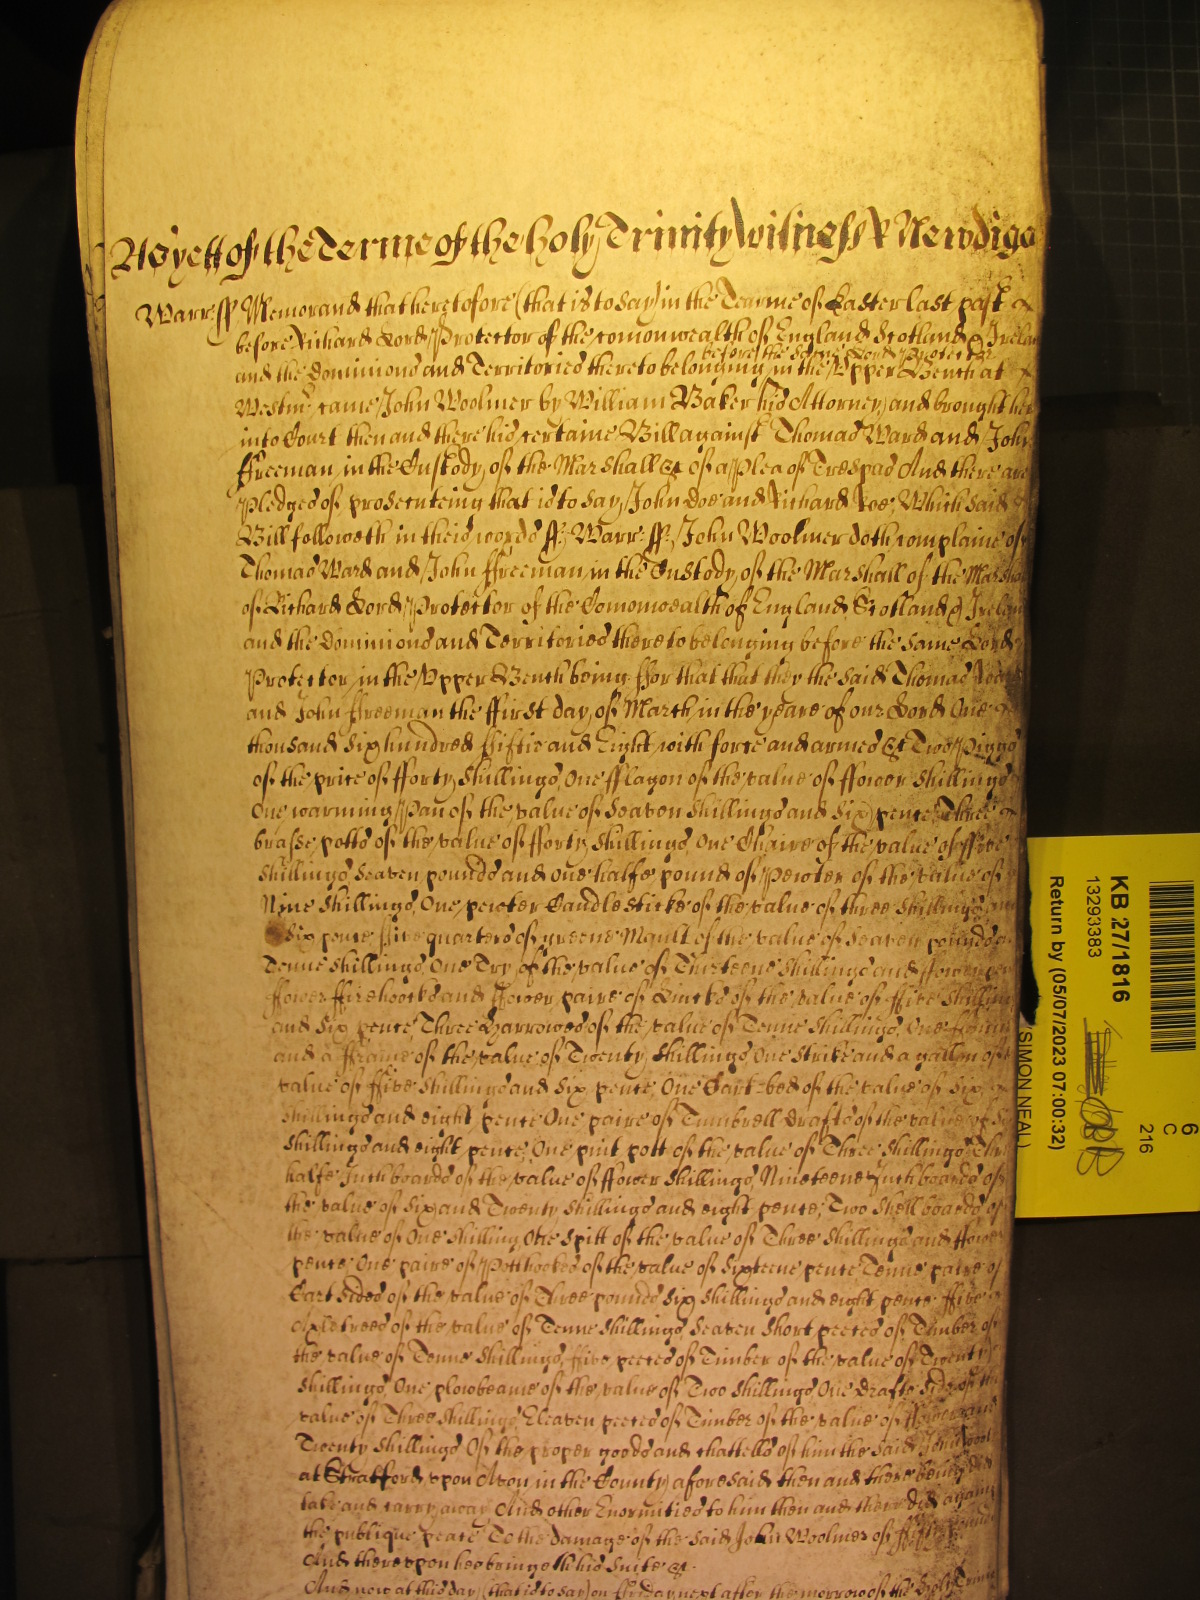 As yett of the Terme of the holy Trinity Witness R Newdiga
Warr: ss Memorand that heretofore (that is to say) in the Tearme of Easter last past
before Richard Lord Protector of the comonwealth of England Scotland & Irelan
before the same Lord Protector
and the Dominions and Territories thereto belonging in the Upper Bench at
Westmr came John Woolmer by William Baker his Attorney and brought here
into Court then and there his certaine Bill against Thomas Ward and John
ffreeman in the Custody of the Marshall &c of a Plea of Trespas And there are
Pledges of prosecuteing that is to say John Doe and Richard Roe, Which said
Bill followeth in theis words ss Warr: ss John Woolmer doth complaine of
Thomas Ward and John ffreeman in the Custody of the Marshall of the Marshal
of Richard Lord Protector of the Comonwealth of England Scotland & Irelan
and the Dominions and Territories thereto belonging before the same Lord
Protector in the Upper Bench being ffor that that they the said Thomas Ward
and John ffreeman the ffirst day of March in the yeare of our Lord One
thousand six hundred ffiftie and Eight with force and armes &c Two Piggs
of the price of fforty shillings One fflagon of the value of ffower shillings
One warming Pan of the value of Seaven shillings and six pence Three
brasse potts of the value of fforty shillings, One Chaire of the value of ffive
shillings Seaven pounds and one halfe pound of Pewter of the value of
Nine shillings, One pewter Candlesticke of the value of three shillings and
Six pence ffive quarters of greene Mault of the value of Seaven pounds
Tenne shillings, One of the value of Thirteene shillings and ffower pen
ffower ffirehookes and ffower paire of Lincks of the value of ffive shillings
and six pence Three Harrowes of the value of Tenne shillings, One
and a fframe of the value of Twenty shillings One strike and a gallon of t
value of ffive shillings and six pence, One Cart-bed of the value of six
shillings and eight pence One paire of Tumbrell drafts of the value of S
shillings and eight pence, One pint pott of the value of Three shillings, Thr
halfe Inch boards of the value of ffower shillings, Nineteene Inch boards of
the value of Six and Twenty shillings and eight pence, Two shelf boards of
the value of One shilling One spitt of the value of Three shillings and ffower
pence One paire of Potthookes of the value of Sixteene pence Tenne paire of
Cart sides of the value of Three pounds Six shillings and eight pence ffive
Axletrees of the value of Tenne shillings, Seaven short peeces of Timber of
the value of Tenne shillings, ffive peeces of Timber of the value of Twenty
shillings, One plowbeame of the value of Two shillings One drafte side of the
value of Three shillings Eleaven peeces of Timber of the value of ffower and
Twenty shillings Of the proper goods and chattells of him the said John Wool
at Stratford upon Avon in the County aforesaid then and there being did
take and carry away And other Enormities to him then and there did against
the publique peace To the damage of the said John Woolmer of ffiftie pounds
And thereupon hee bringeth his Suite &c.
And now at this day (that is to say) on ffriday next after the morrow of the holy Trinit
KB 27/1816
13293383
Return by (05/07/2023 07:00:32)
(SIMON NEAL)
6
C
216